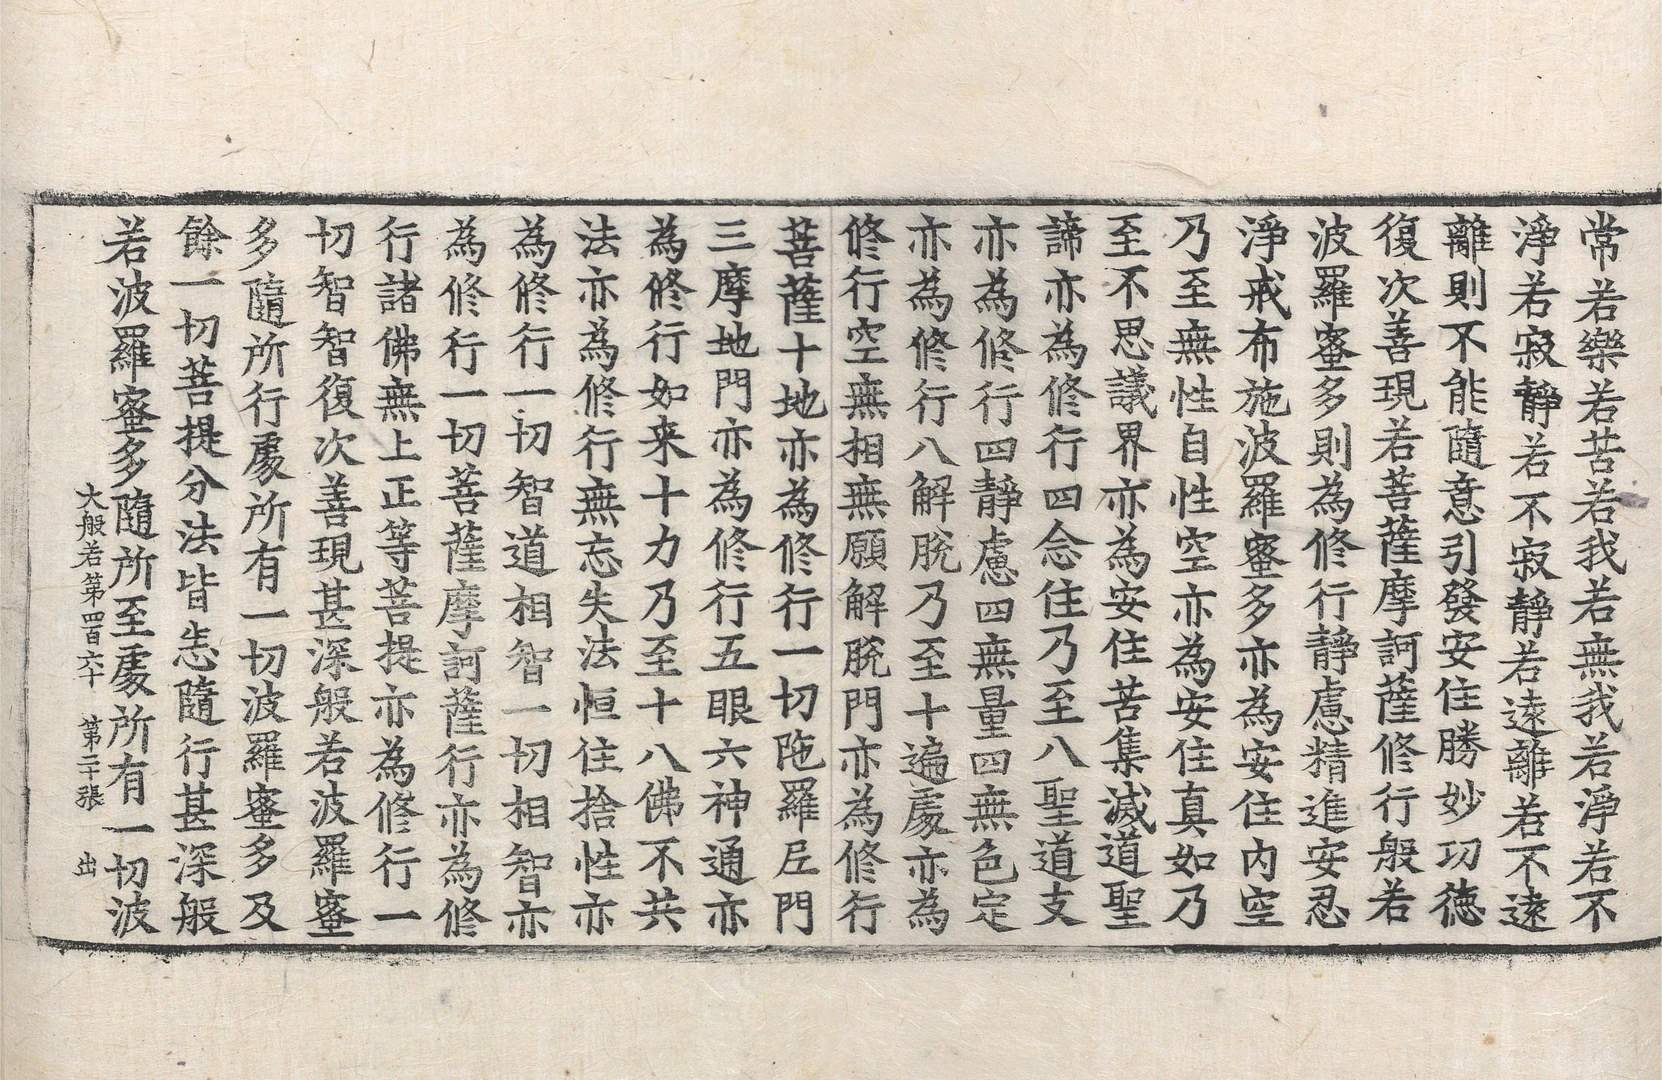 常若樂若苦若我若無我若淨若不
淨若寂靜若不寂靜若遠離若不遠
離則不能隨意引發安住勝妙功德
復次善現若菩薩摩訶薩修行般若
波羅蜜多則為修行靜慮精進安忍
淨戒布施波羅蜜多亦為安住內空
乃至無性自性空亦為安住真如乃
至不思議界亦為安住苦集滅道聖
諦亦為修行四念住乃至八聖道支
亦為修行四靜慮四無量四無色定
亦為修行八解脫乃至十遍處亦為
修行空無相無願解脫門亦為修行
菩薩十地亦為修行一切陁羅尼門
三摩地門亦為修行五眼六神通亦
為修行如来十力乃至十八佛不共
法亦為修行無忘失法恒住捨性亦
為修行一切智道相智一切相智亦
為修行一切菩薩摩訶薩行亦為修
行諸佛無上正等菩提亦為修行一
切智智復次善現甚深般若波羅蜜
多隨所行處所有一切波羅蜜多及
餘一切菩提分法皆悉隨行甚深般
若波羅蜜多隨所至處所有一切波
大般若第四百六十 第二十張 出